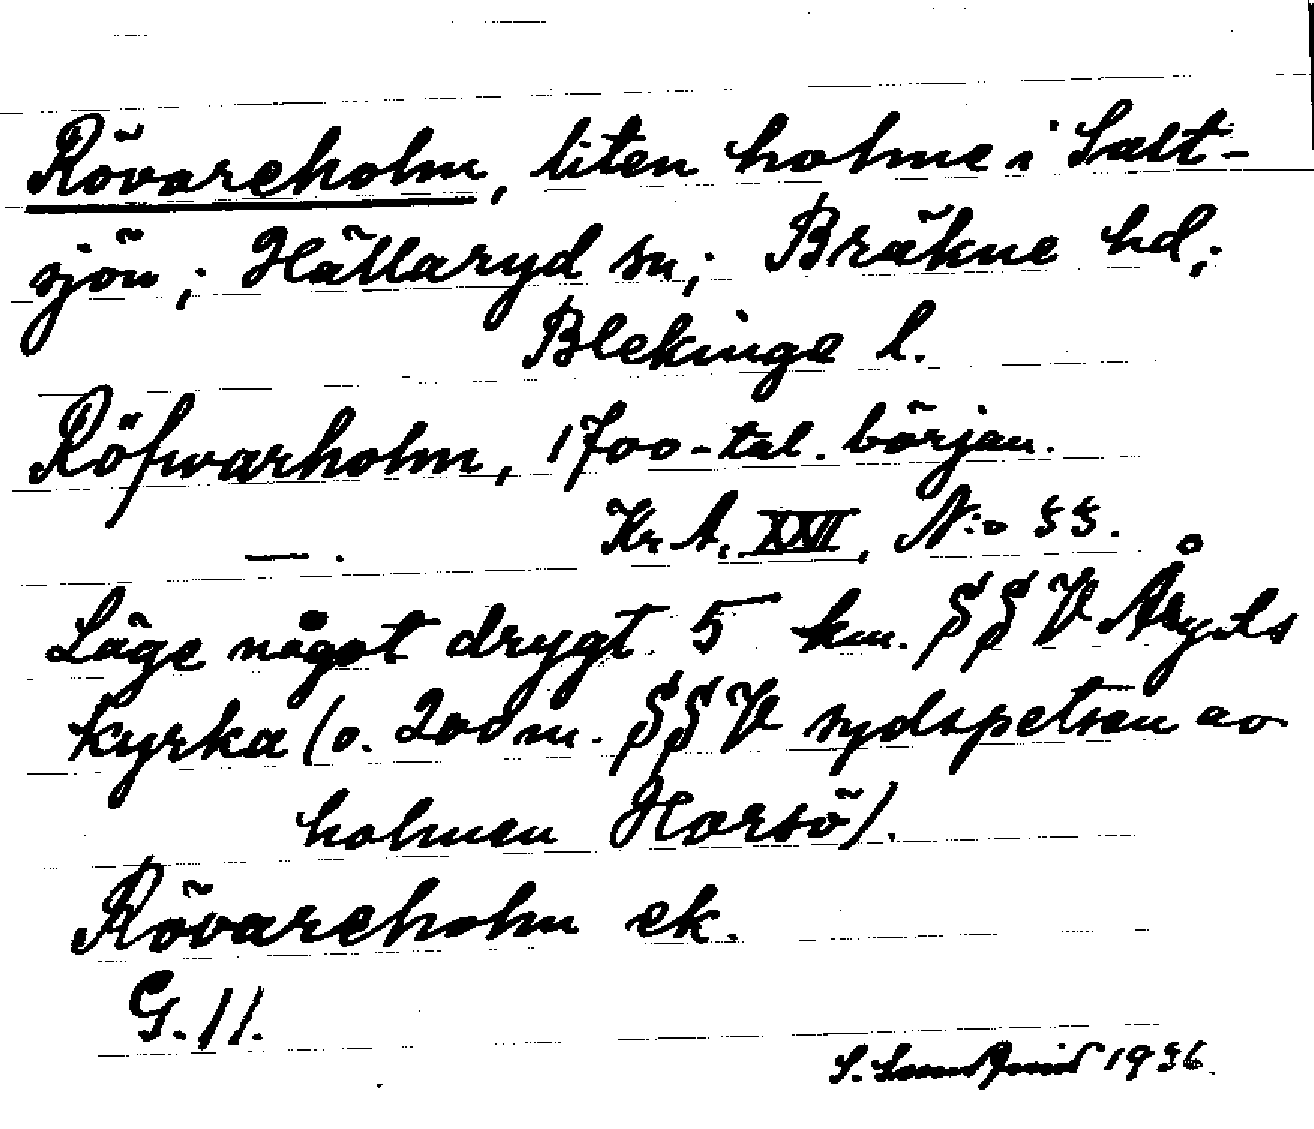 Rövareholm, liten holme i Salt-
sjön; Hällaryd sn; Bräkne hd;
Blekinge l.
Röfwarholm, 1700-tal. början.
— . Kr. A. XXVI, N:o 33.
Läge något drygt 5 km. SSV Åryds
kyrka (o. 200 m. SSV sydspetsen av
holmen Horsö).
Rövareholm ek.
G. 11.
S. 1936.